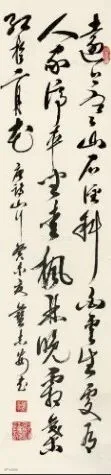 遠上寒山石徑斜白雲生處有
人家停車坐愛楓林晚霜葉
紅於二月花 唐詩山行 癸未